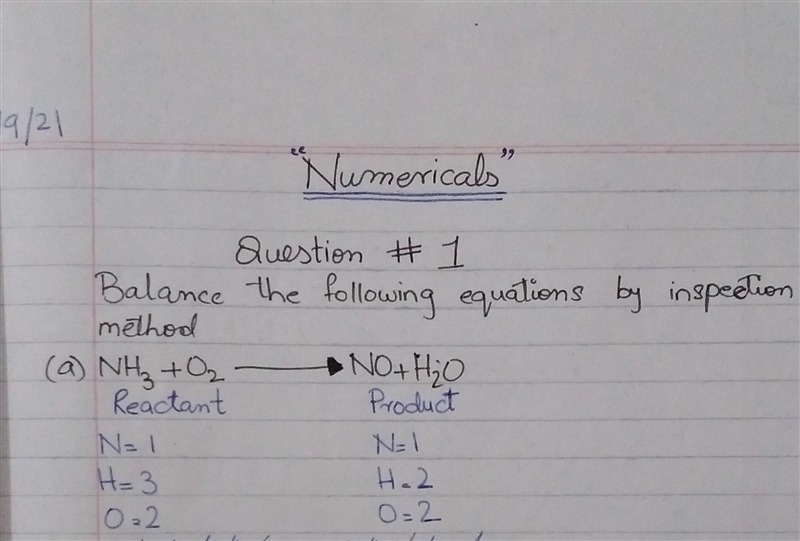 19/21
"Numericals"
Question # 1
Balance the following equations by inspection
method
(a) NH₃ + O₂ → NO + H₂O
Reactant Product
N = 1 N = 1
H = 3 H = 2
O = 2 O = 2